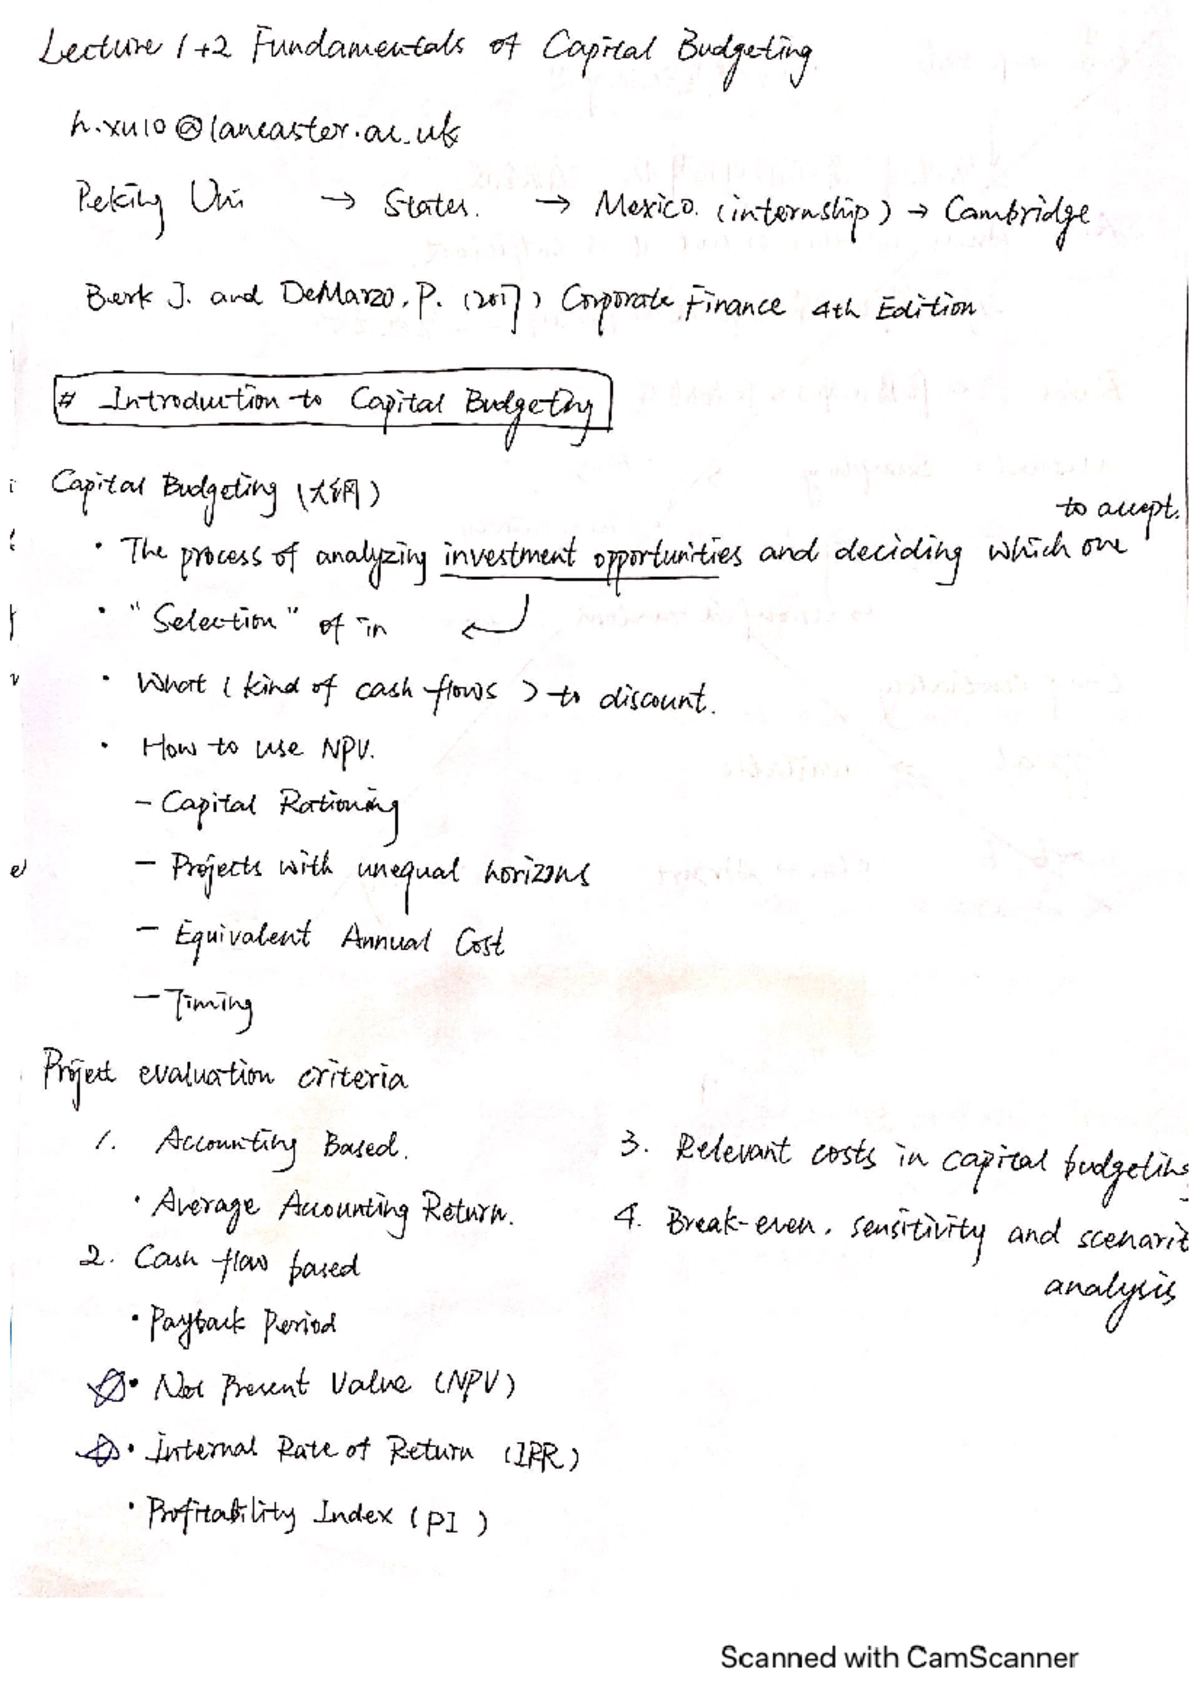 Lecture 1+2 Fundamentals of Capital Budgeting
h.xu10@lancaster.ac.uk
Peking Uni → States. → Mexico. (internship) → Cambridge
Berk J. and DeMarzo, P. (2017) Corporate Finance 4th Edition
# Introduction to Capital Budgeting
Capital Budgeting (大纲)
• The process of analyzing investment opportunities and deciding which one to accept.
• "Selection" of in
• What (kind of cash flows) to discount.
• How to use NPV.
- Capital Rationing
- Projects with unequal horizons
- Equivalent Annual Cost
- Timing
Project evaluation criteria
1. Accounting Based.
• Average Accounting Return.
2. Cash flow based
• Payback Period
• Net Present Value (NPV)
• Internal Rate of Return (IRR)
• Profitability Index (PI)
3. Relevant costs in capital budgeting
4. Break-even, sensitivity and scenario
analysis
Scanned with CamScanner